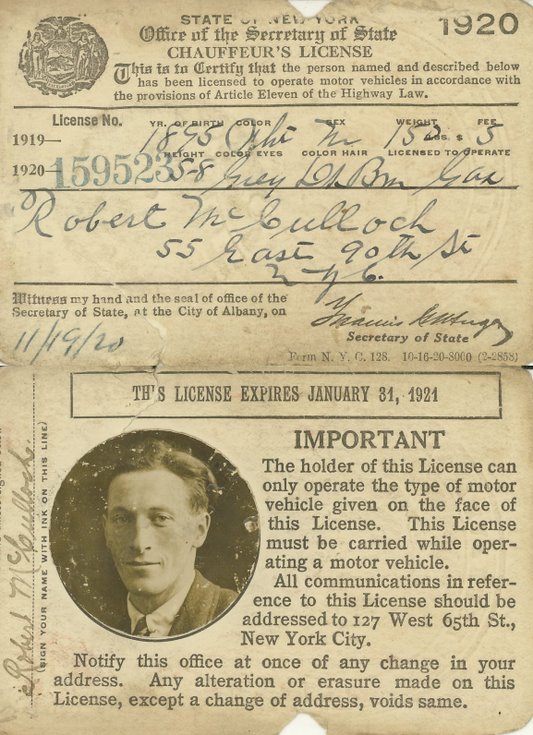 STATE OF NEW YORK
1920
Office of the Secretary of State
CHAUFFEUR'S LICENSE
This is to Certify that the person named and described below
has been licensed to operate motor vehicles in accordance with
the provisions of Article Eleven of the Highway Law.
License No. YR. OF BIRTH COLOR SEX WEIGHT FEE
1919— 1895 Whi M 152 LBS. $ 5
HEIGHT COLOR EYES COLOR HAIR LICENSED TO OPERATE
1920— 159523 5-8 Grey Dk Brn Gas
Robert McCulloch
55 East 90th St
N.Y.C.
Witness my hand and the seal of office of the
Secretary of State, at the City of Albany, on
11/19/20
Francis M. Hugo
Secretary of State
Form N. Y. C. 128. 10-16-20-8000 (2-2858)
TH'S LICENSE EXPIRES JANUARY 31, 1921
IMPORTANT
The holder of this License can
only operate the type of motor
vehicle given on the face of
this License. This License
must be carried while oper-
ating a motor vehicle.
All communications in refer-
ence to this License should be
addressed to 127 West 65th St.,
New York City.
Notify this office at once of any change in your
address. Any alteration or erasure made on this
License, except a change of address, voids same.
Robert McCulloch.
(SIGN YOUR NAME WITH INK ON THIS LINE)